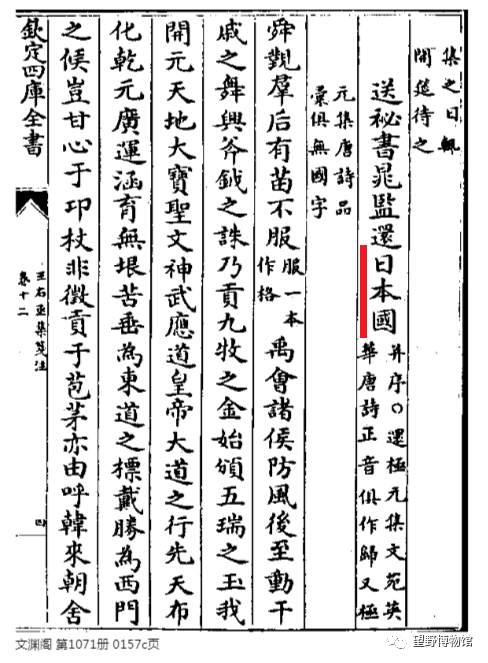 集之日輒
開筵待之
送祕書晁監還日本國
并序○還極元集文苑英
華唐詩正音俱作歸又極
元集唐詩品
彙俱無國字
舜覲羣后有苗不服
服一本
作格
禹會諸侯防風後至動干
戚之舞興斧鉞之誅乃貢九牧之金始頒五瑞之玉我
開元天地大寶聖文神武應道皇帝大道之行先天布
化乾元廣運涵育無垠苦垂為東道之標戴勝為西門
之候豈甘心于邛杖非徵貢于苞茅亦由呼韓來朝舍
欽定四庫全書
王右丞集箋注
卷十二
四
文渊阁 第1071册 0157c页
望野博物馆